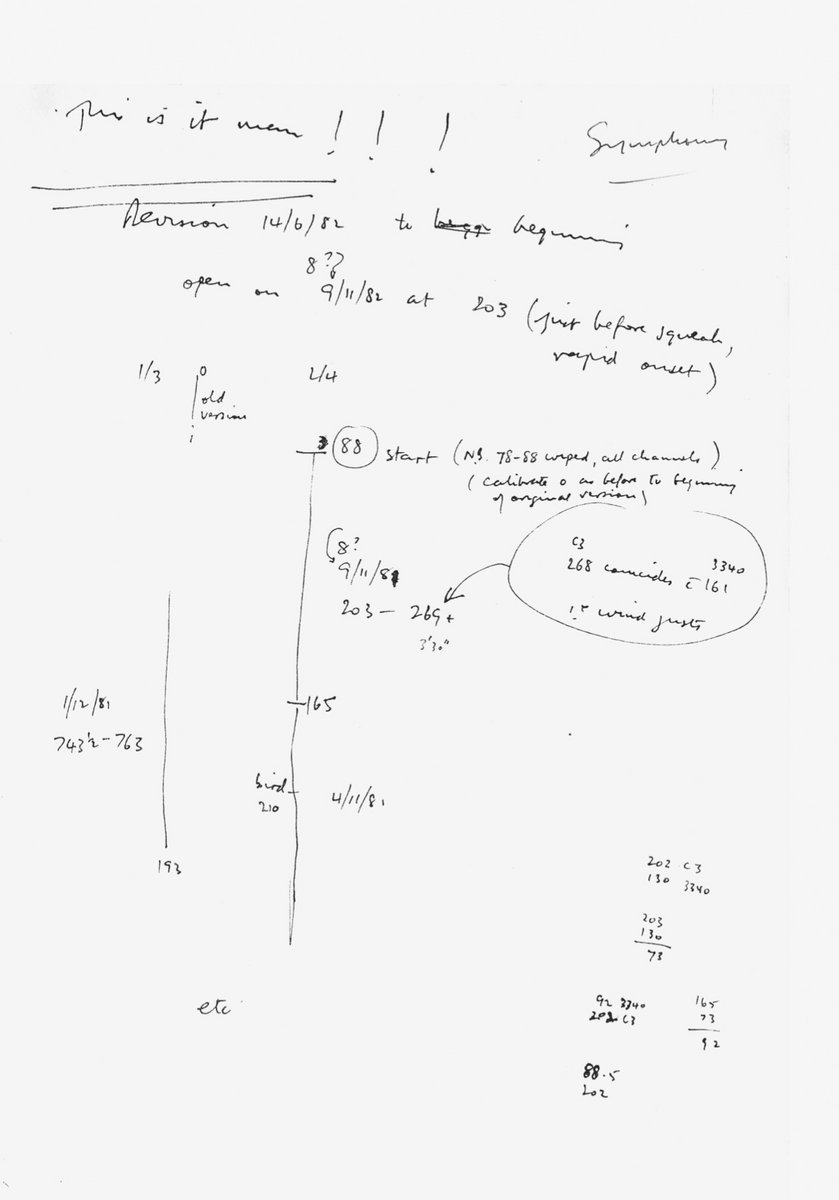 This is it man ! ! !
Symphony
Revision 14/6/82 to beginning
8??
open on 9/11/82 at 203 (just before squeak,
rapid onset)
1/3
0
2/4
old
version
88 start (N.B. 78-88 wiped, all channels)
(calibrate 0 as before to beginning
of original version)
8?
9/11/81
203 - 269+
3'30"
C3
3340
268 coincides c̄ 161
1st wind gusts
1/12/81
743½-763
165
bird
210
4/11/81
193
202 C3
130 3340
203
130
73
92 3340
202 C3
165
73
92
88.5
202
etc